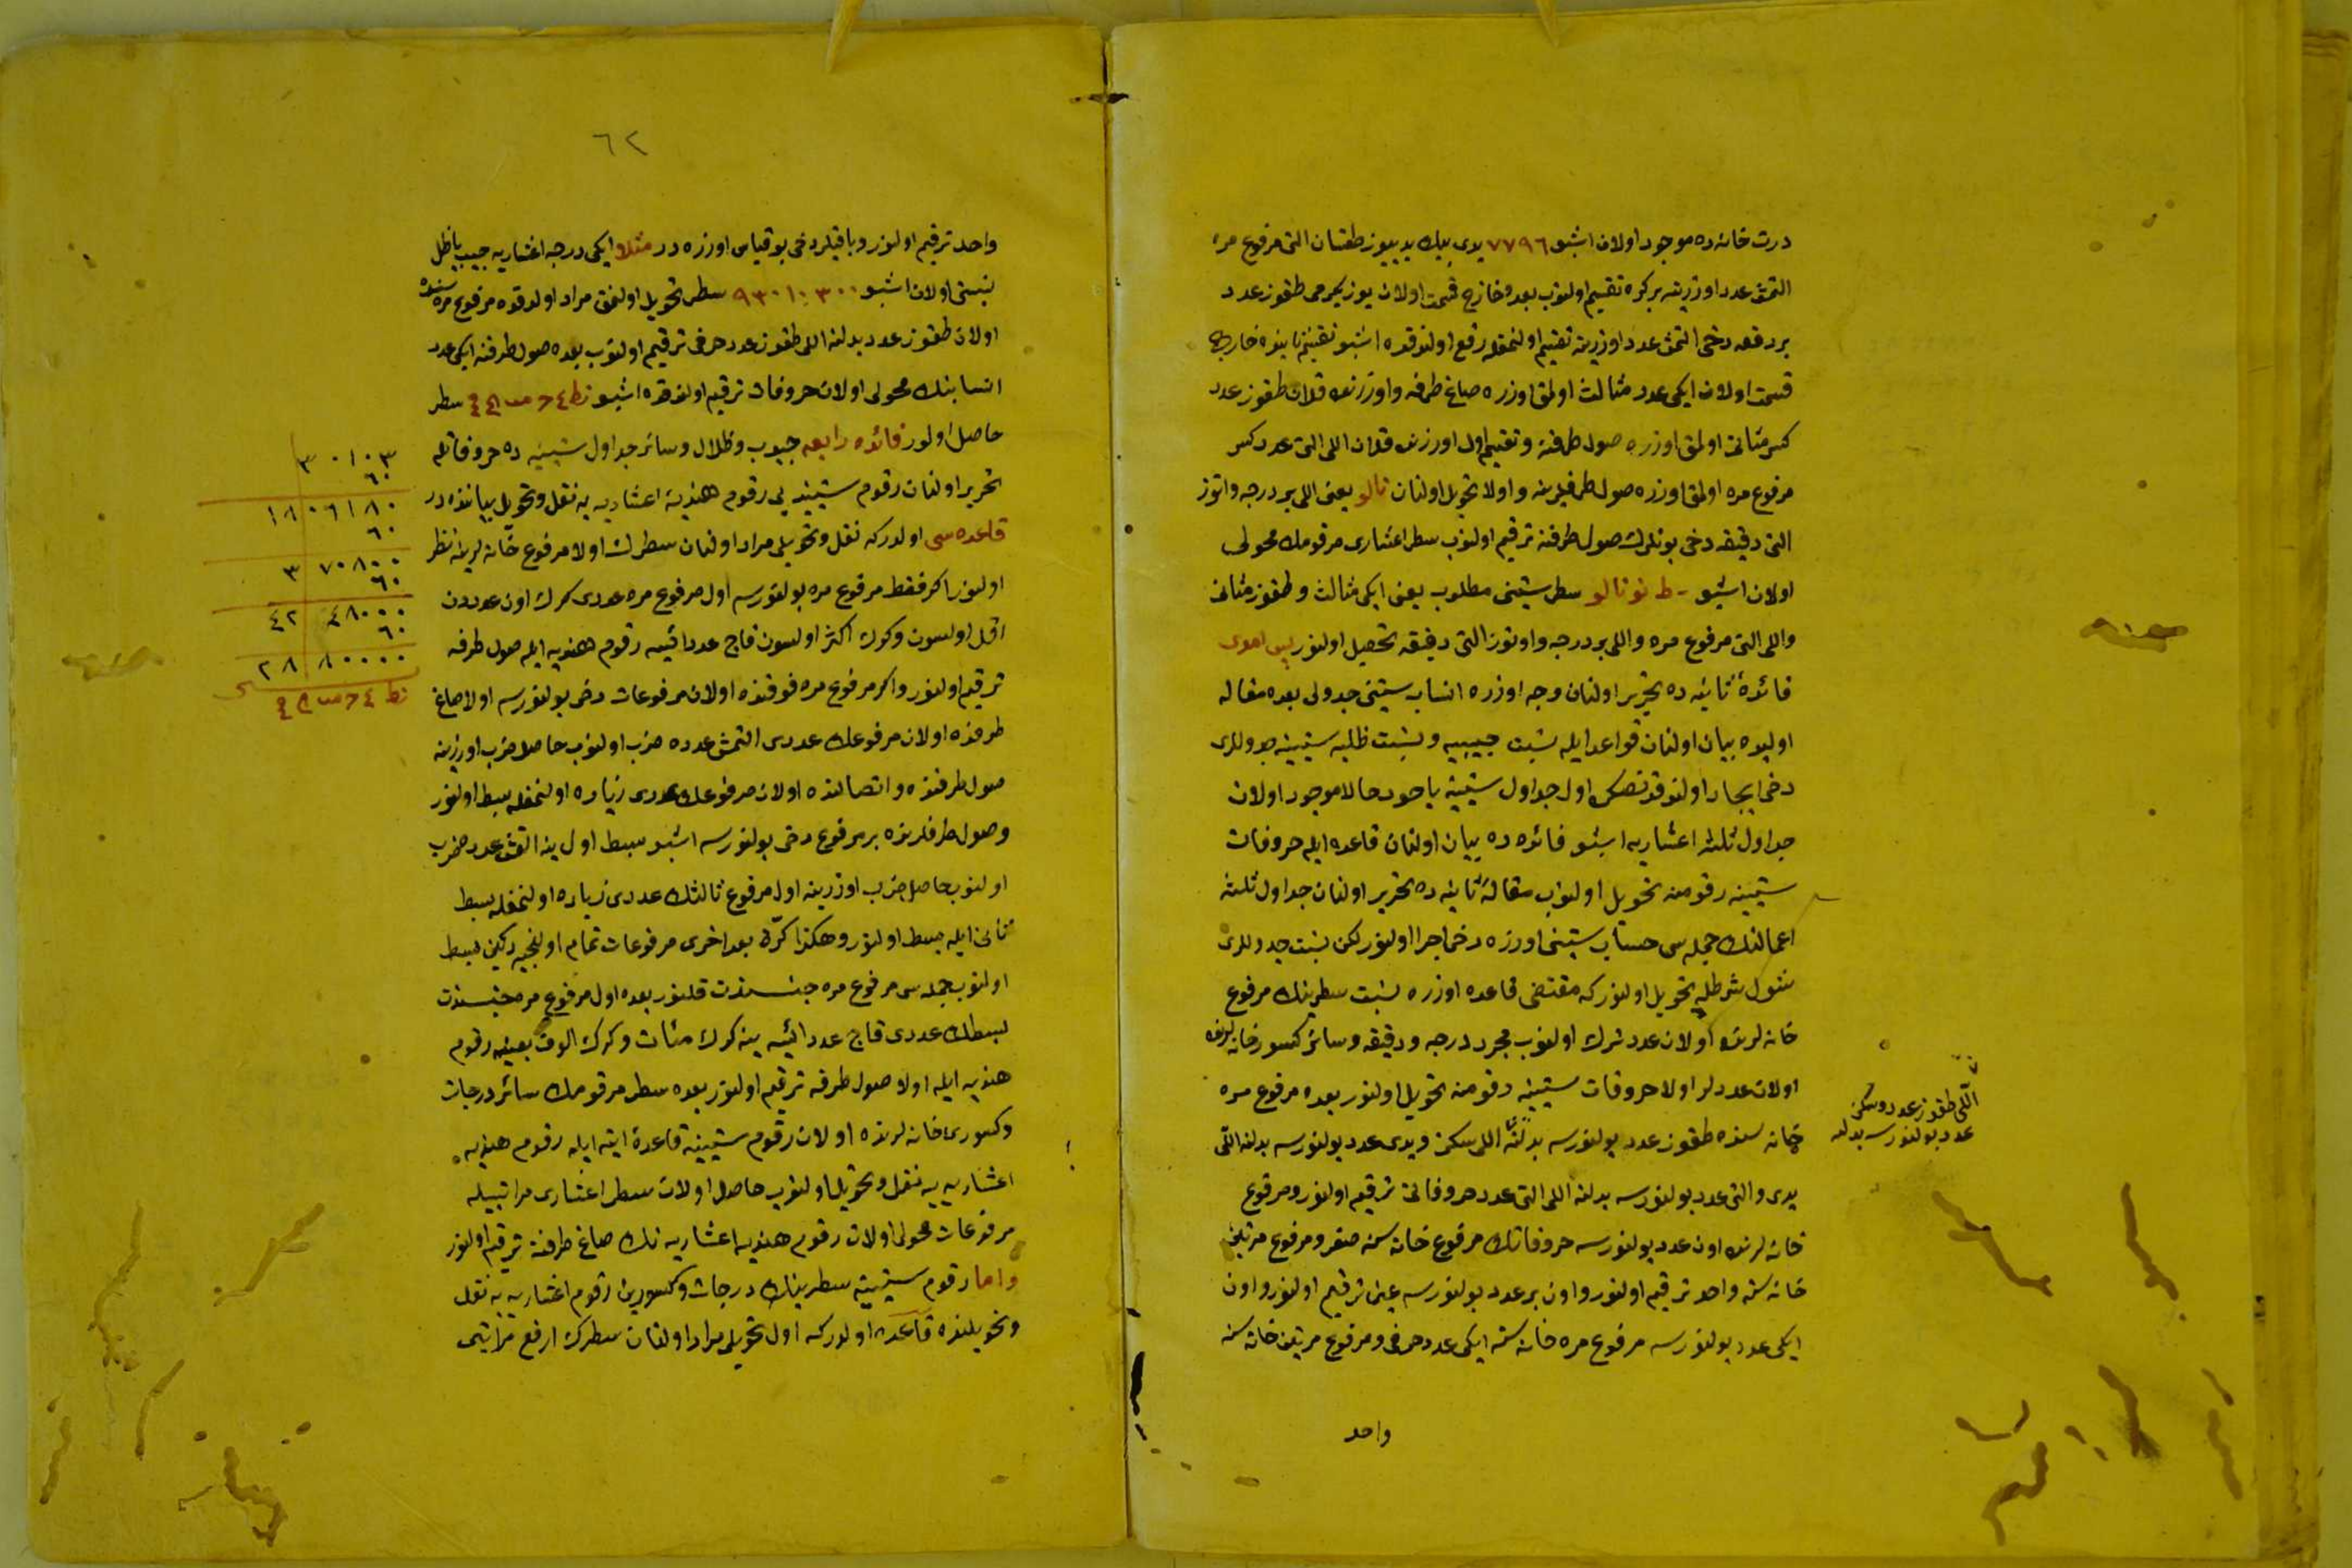 درت خانه ده موجود اولان اشبو ٧٧٩٦ یدی بیك یدییوز طقسان التی مرفوع مره
التمش عدد اوزرینه بر کره تقسیم اولنوب بعده خارج قسمت اولان یوز یکرمی طقوز عدد
بر دفعه دخی التمش عدد اوزرینه تقسیم اولنمغله رفع اولندقده اشبو تقسیم ثانیده خارج
قسمت اولان ایکی عدد مثالث اولمق اوزره صاغ طرفنه و اوزرنده قلان طقوز عدد
کسر مثانی اولمق اوزره صول طرفنه و تقسیم اول اوزرنده قلان اللی التی عدد کسر
مرفوع مره اولمق اوزره صول طرفلرینه و اولا تحویل اولنان نالو یعنی اللی بر درجه و اتوز
التی دقیقه دخی بونلرك صول طرفنه ترقیم اولنوب سطر اعشاری مرقومك محولی
اولان اشبو ب ط نو نا لو سطر ستینی مطلوب یعنی ایکی مثالث و طقوز مثانی
واللی التی مرفوع مره واللی بر درجه و اوتوز التی دقیقه تحصیل اولنور
فائدهٔ ثانیه ده تحریر اولنان وجه اوزره انساب ستینی جدولی بعده مقاله
اولیده بیان اولنان قواعد ایله نسبت جیبیه و نسبت ظلیه ستینیه جدوللری
دخی ایجاد اولندقدنصکره اول جداول ستینیه یاخود حالا موجود اولان
جداول ثلثه اعشاریه اشبو فائده ده بیان اولنان قاعده ایله حروفات
ستینیه رقومنه تحویل اولنوب مقالهٔ ثانیه ده تحریر اولنان جداول ثلثه
اعمالنك جمله سی حساب ستینی اوزره دخی اجرا اولنور لکن نسبت جدوللری
شول شرطله تحویل اولنور که مقتضی قاعده اوزره نسبت سطرینك مرفوع
خانه لرنده اولان عدد ترك اولنوب مجرد درجه و دقیقه و سائر کسور خانه لرنده
اولان عددلر اولا حروفات ستینیه رقومنه تحویل اولنور بعده مرفوع مره
خانه سنده طقوز عدد بولنورسه بدلنه اللی سکز و یدی عدد بولنورسه بدلنه اللی
یدی و التی عدد بولنورسه بدلنه اللی التی عدد حروفاتی ترقیم اولنور و مرفوع
خانه لرنده اون عدد بولنورسه حروفاتك مرفوع خانه سنه صفر و مرفوع مرتین
خانه سنه واحد ترقیم اولنور و اون بر عدد بولنورسه عینی ترقیم اولنور و اون
ایکی عدد بولنورسه مرفوع مره خانه سنه ایکی عدد حرفی و مرفوع مرتین خانه سنه
واحد
اللی طقوز عدد و سکز
عدد بولنورسه بدلنه
٦٢
واحد ترقیم اولنور و باقیلر دخی بو قیاس اوزره در مثلا ایکی درجه اعشاریه جیب یا ظل
نسبتی اولان اشبو ٩٣٠١٠٣٠٠ سطر تحویل اولنمق مراد اولندقده مرفوع مره سنده
اولان طقوز عدد بدلنه اللی طقوز عدد حرفی ترقیم اولنوب بعده صول طرفنه ایکی عدد
انسابنك محولی اولان حروفات ترقیم اولندقده اشبو سطر
حاصل اولور فائده رابعه جیوب و ظلال و سائر جداول ستینیه ده حروفاتله
تحریر اولنان رقوم ستینیه یی رقوم هندیه اعشاریه یه نقل و تحویل بیاننده در
قاعده سی اولدر که نقل و تحویلی مراد اولنان سطرك اولا مرفوع خانه لرینه نظر
اولنور اکر فقط مرفوع مره بولنورسه اول مرفوع مره عددی کرك اون عددن
اقل اولسون و کرك اکثر اولسون قاچ عدد ایسه رقوم هندیه ایله صول طرفه
ترقیم اولنور و اکر مرفوع مره فوقنده اولان مرفوعات دخی بولنورسه اولا صاغ
طرفنده اولان مرفوعك عددی التمش عدده ضرب اولنوب حاصل ضرب اوزرینه
صول طرفنده و اتصالنده اولان مرفوعك عددی زیاده اولنمغله بسط اولنور
و صول طرفلرنده بر مرفوع دخی بولنورسه اشبو مبسط اول ینه التمش عدد ضرب
اولنوب حاصل ضرب اوزرینه اول مرفوع ثالثك عددی زیاده اولنمغله بسط
ثانی ایله مبسط اولنور و هکذا کرّة بعد اخری مرفوعات تمام اولنجیه دکین مبسط
اولنوب جمله سی مرفوع مره جنسندن قلنور بعده اول مرفوع مره جنسندن
بسطك عددی قاچ عدد ایسه ینه کرك مئات و کرك الوف بعینه رقوم
هندیه ایله اولا صول طرفه ترقیم اولنور بعده سطر مرقومك سائر درجات
و کسوری خانه لرنده اولان رقوم ستینیه قاعدهٔ اتیه ایله رقوم هندیه
اعشاریه یه نقل و تحویل اولنوب حاصل اولان سطر اعشاری مراتبیله
مرفوعات محولی اولان رقوم هندیه اعشاریه نك صاغ طرفنه ترقیم اولنور
و اما رقوم ستینیه سطرینك درجات و کسورینی رقوم اعشاریه یه نقل
و تحویلنده قاعده اولدر که اول تحویلی مراد اولنان سطرك ارفع مراتبی
٣ ٠١٠٣
٦٠
١٨ ٠٦١٨٠
٦٠
٣ ٧٠٨٠٠
٦٠
٤٢ ٤٨٠٠٠
٦٠
٢٨ ٨٠٠٠٠